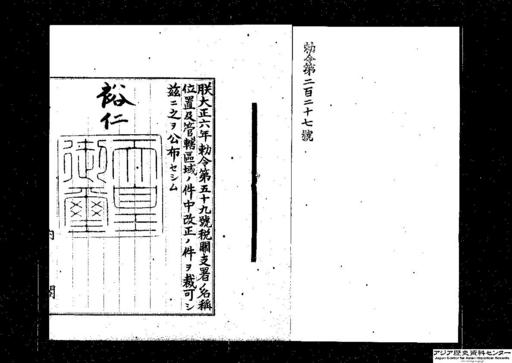 勅令第二百二十七號
朕大正六年勅令第五十九號税關支署ノ名稱
位置及管轄區域ノ件中改正ノ件ヲ裁可シ
茲ニ之ヲ公布セシム
裕仁
天皇
御璽
内閣
アジア歴史資料センター
Japan Center for Asian Historical Records